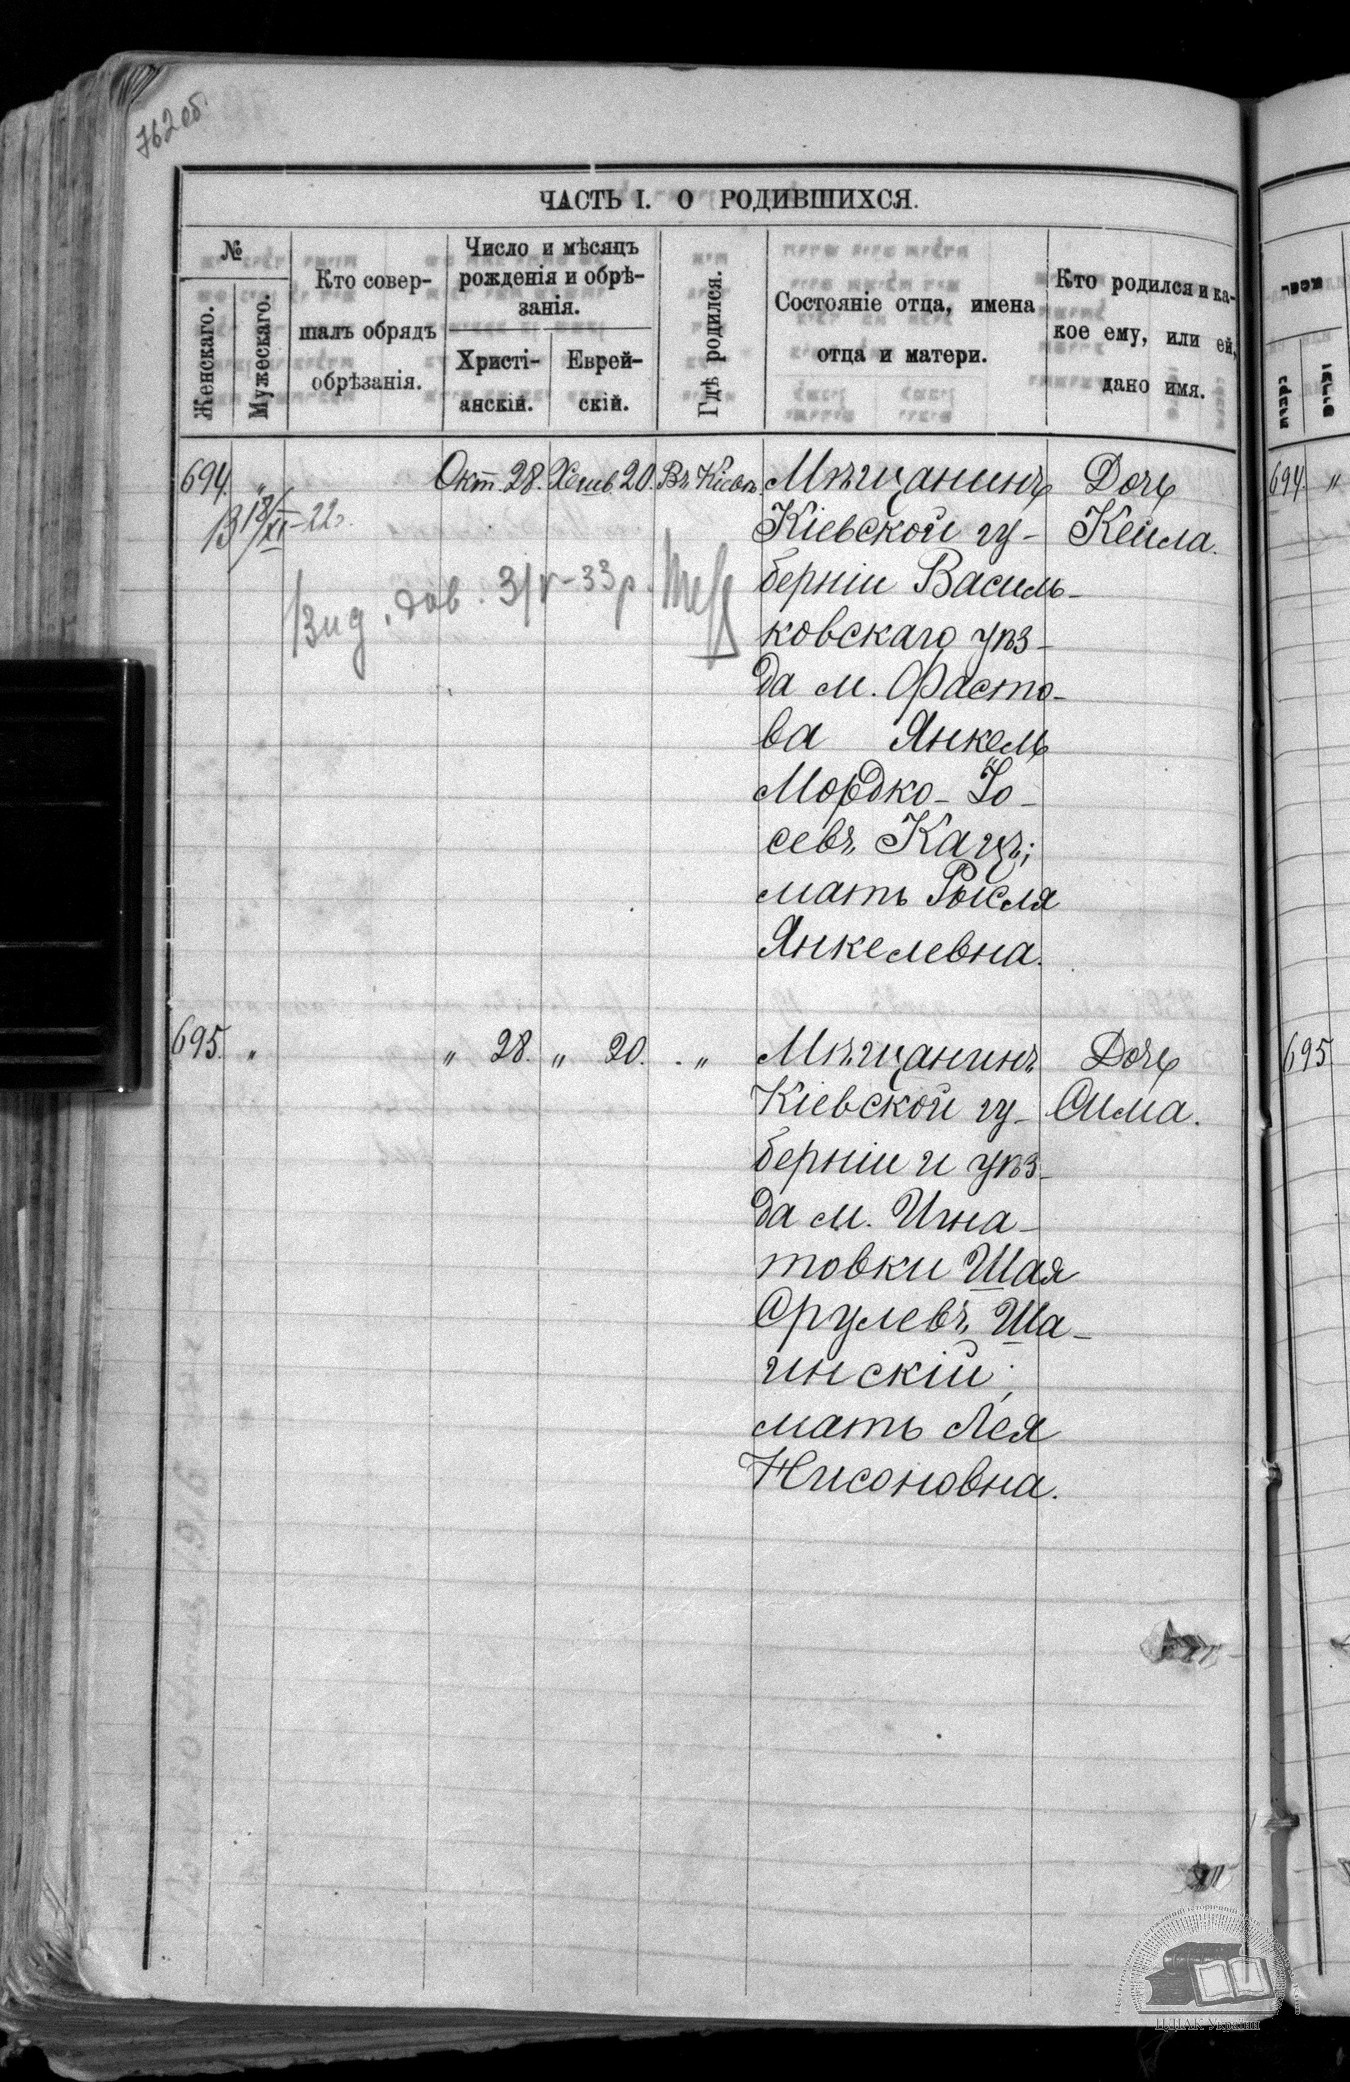 762об.
ЧАСТЬ I. О РОДИВШИХСЯ.
№
Женскаго.
Мужескаго.
Кто совер-
шалъ обрядъ
обрѣзанія.
Число и мѣсяцъ
рожденія и обрѣ-
занія.
Христі-
анскій.
Еврей-
скій.
Гдѣ родился.
Состояніе отца, имена
отца и матери.
Кто родился и ка-
кое ему, или ей,
дано имя.
694. „ Окт. 28. Хешв. 20. Въ Кіевѣ. Мѣщанинъ Дочь
Кіевской гу- Кейла.
берніи Василь-
ковскаго уѣз-
да м. Фасто-
ва Янкель
Мордко-Іо-
севъ Кацъ;
мать Рысля
Янкелевна.
В 13/XI-22г.
Вид. дов. 3/V-33р.
695. „ „ 28. „ 20. „ Мѣщанинъ Дочь
Кіевской гу- Сима.
берніи и уѣз-
да м. Игна-
товки Шая
Срулевъ Ша-
гинскій;
мать Лея
Нисоновна.
694. „
695
ЦДІАК України